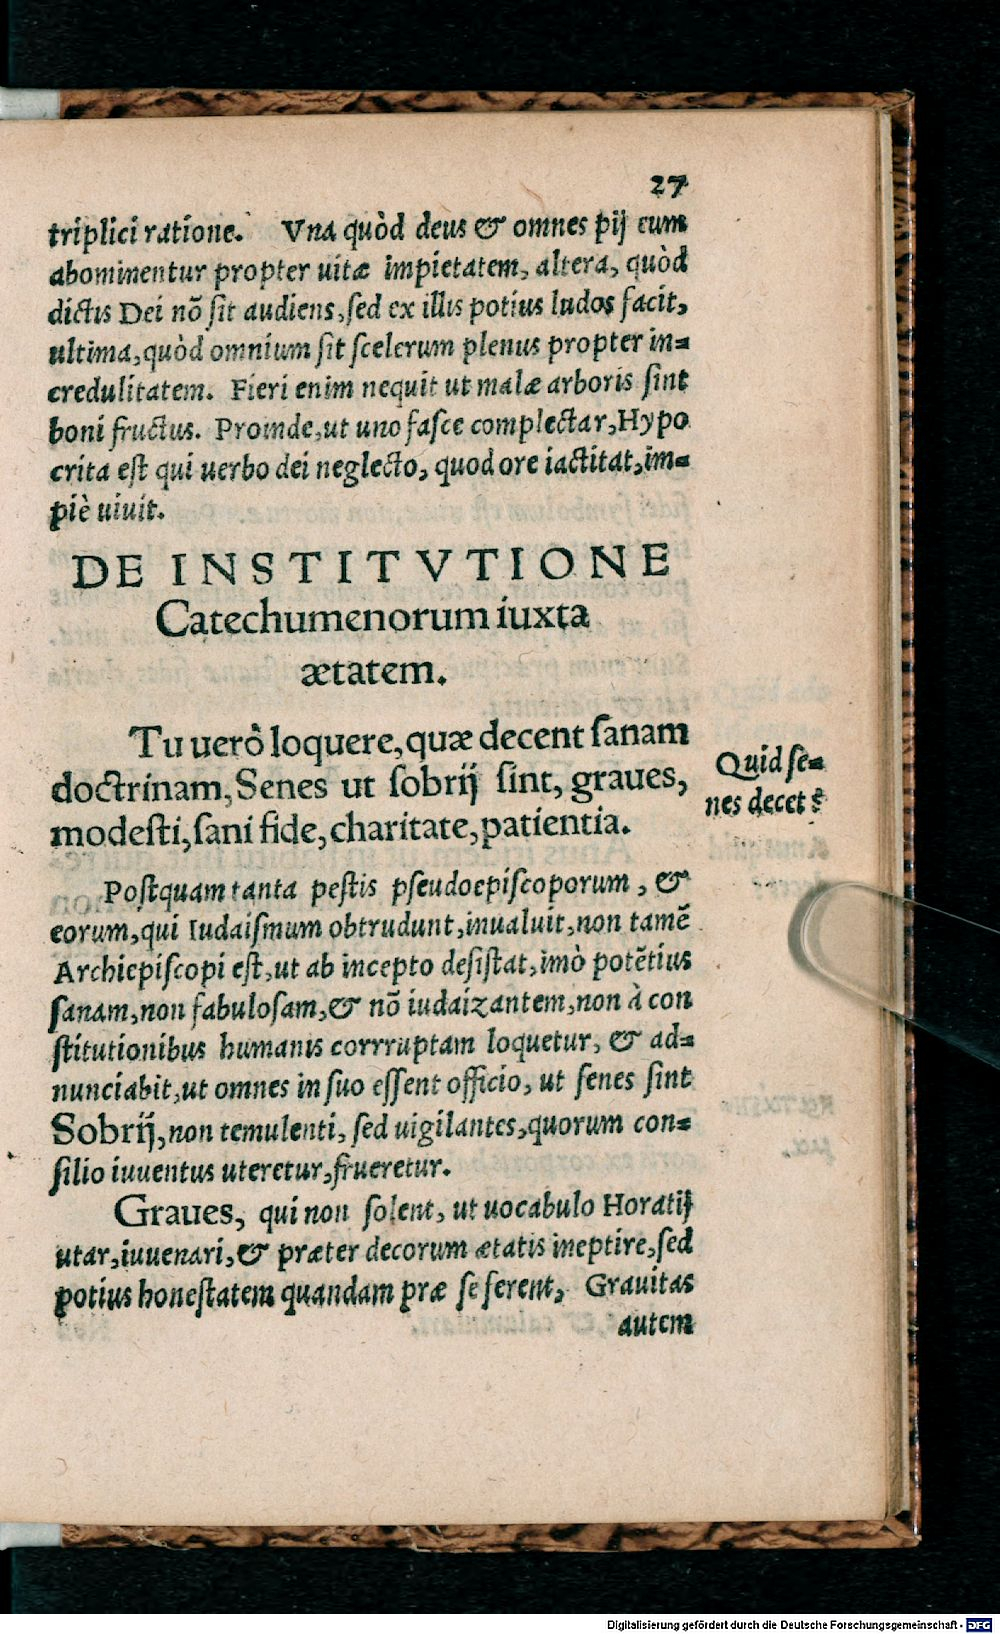 27
triplici ratione. Vna quòd deus & omnes pij eum
abominentur propter uitæ impietatem, altera, quòd
dictis Dei nõ sit audiens, sed ex illis potius ludos facit,
ultima, quòd omnium sit scelerum plenus propter in=
credulitatem. Fieri enim nequit ut malæ arboris sint
boni fructus. Proinde, ut uno fasce complectar, Hypo
crita est qui uerbo dei neglecto, quod ore iactitat, im=
piè uiuit.
DE INSTITVTIONE
Catechumenorum iuxta
ætatem.
Tu uerò loquere, quæ decent sanam
doctrinam, Senes ut sobrij sint, graues,
modesti, sani fide, charitate, patientia.
Quid se=
nes decet?
Postquam tanta pestis pseudoepiscoporum, &
eorum, qui Iudaismum obtrudunt, inualuit, non tamẽ
Archiepiscopi est, ut ab incepto desistat, imò potẽtius
sanam, non fabulosam, & nõ iudaizantem, non à con
stitutionibus humanis corrruptam loquetur, & ad=
nunciabit, ut omnes in suo essent officio, ut senes sint
Sobrij, non temulenti, sed uigilantes, quorum con=
silio iuuentus uteretur, frueretur.
Graues, qui non solent, ut uocabulo Horatij
utar, iuuenari, & præter decorum ætatis ineptire, sed
potius honestatem quandam præ se ferent, Grauitas
autem
Digitalisierung gefördert durch die Deutsche Forschungsgemeinschaft - DFG